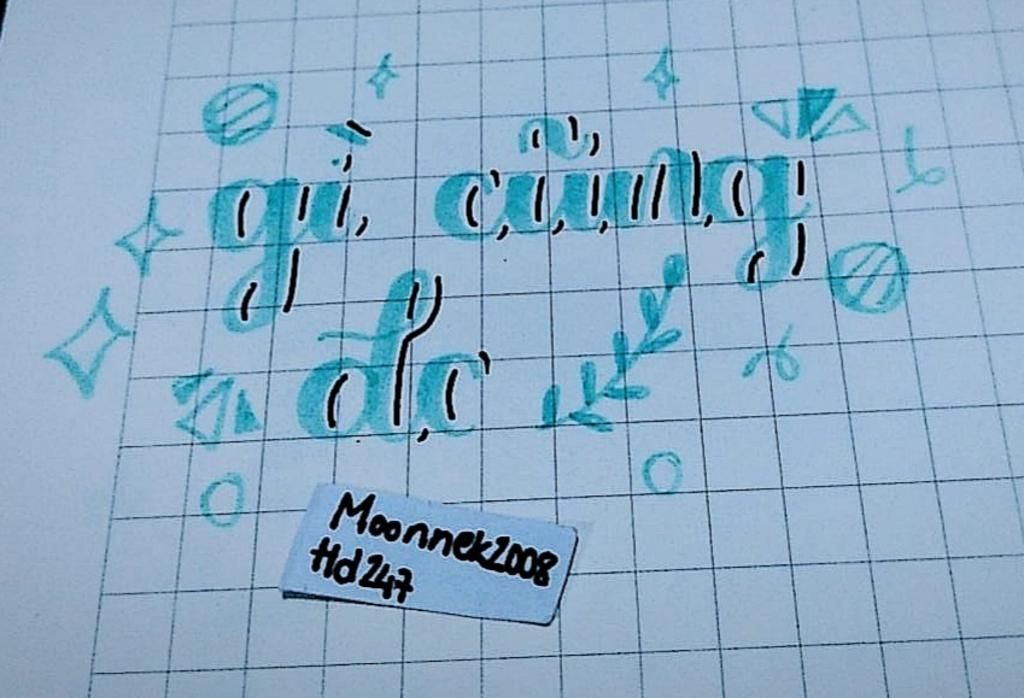 gì cũng
đc
Moonnek2008
Hd247